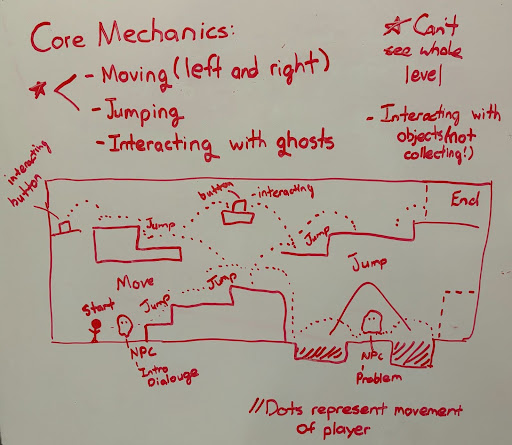 Core Mechanics:
- Moving (left and right)
- Jumping
- Interacting with ghosts
Can't
see whole
level
- Interacting with
objects (not
collecting!)
interacting
button
button
- interacting
End
Jump
Jump
Move
Jump
Jump
Jump
Start
NPC
Intro
Dialouge
NPC
Problem
//Dots represent movement
of player